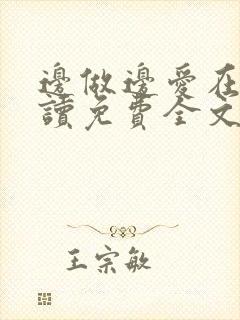 邊做邊愛在
讀免費全文
王宗敏